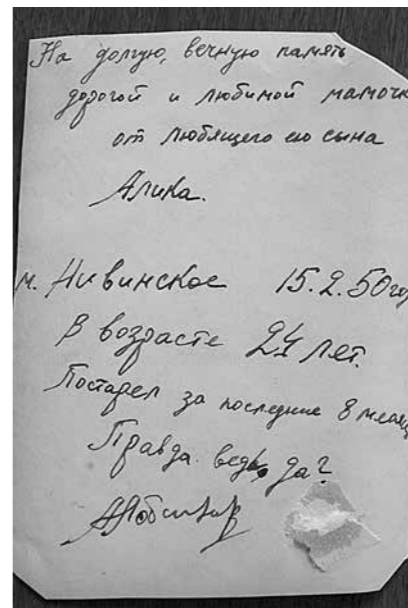 На долгую, вечную память
дорогой и любимой мамочк
от любящего ею сына
Алика.
м. Нивинское 15.2.50 го
В возрасте 24 лет.
Постарел за последние 8 месяц
Правда ведь, да?